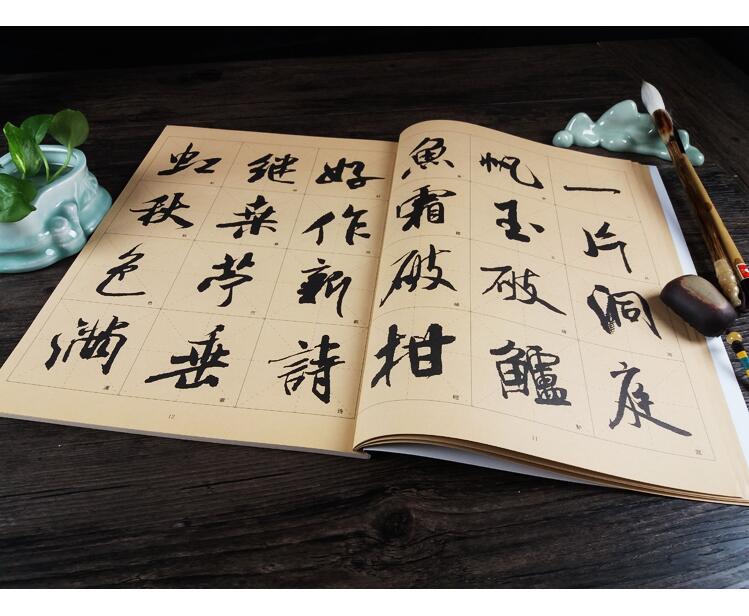 一片洞庭
帆玉破鱸
魚霜破柑
11
好作新詩
继桒苧垂
虹秋色满
12